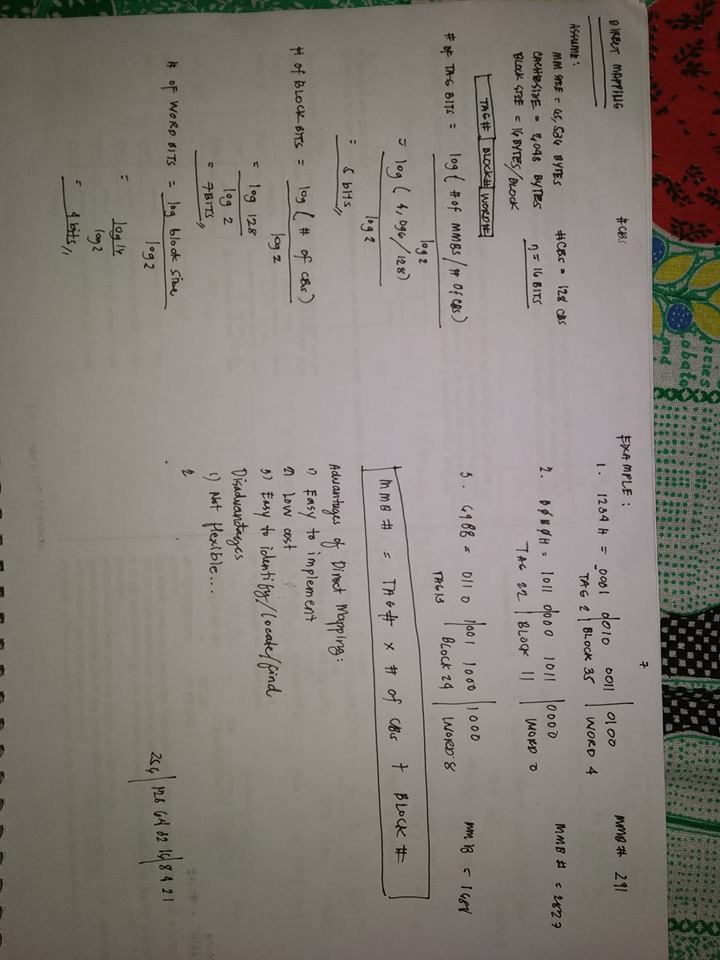 species
cobalto
and
DIRECT MAPPING
#CBS
ASSUME:
MM SIZE = 65,536 BYTES
#CBS = 128 CBS
CACHESIZE = 2,048 BYTES
n = 16 BITS
BLOCK SIZE = 16 BYTES/BLOCK
TAG# BLOCK# WORD#
# OF TAG BITS = log ( # of MMBS / # OF CBS )
log 2
= log ( 4,096 / 128)
log 2
= 5 bits
# of BLOCK BITS = log ( # of CBS )
log 2
= log 128
log 2
= 7 BITS
# OF WORD BITS = log block size
log 2
= log 16
log 2
= 4 bits
7
EXAMPLE:
1. 1234 H = 0001 0010 0011 0100
MMB# 291
TAG 2 BLOCK 35 WORD 4
2. B0B0H = 1011 0000 1011 0000
MMB # = 2827
TAG 22 BLOCK 11 WORD 0
3. 6988 = 0110 1001 1000 1000
MMB = 1688
TAG 13 BLOCK 24 WORD 8
MMB # = TAG# x # of CBs + BLOCK #
Advantages of Direct Mapping:
1) Easy to implement
2) Low cost
3) Easy to identify/locate/find
Disadvantages
1) Not flexible...
2
256 128 64 32 16 8 4 2 1